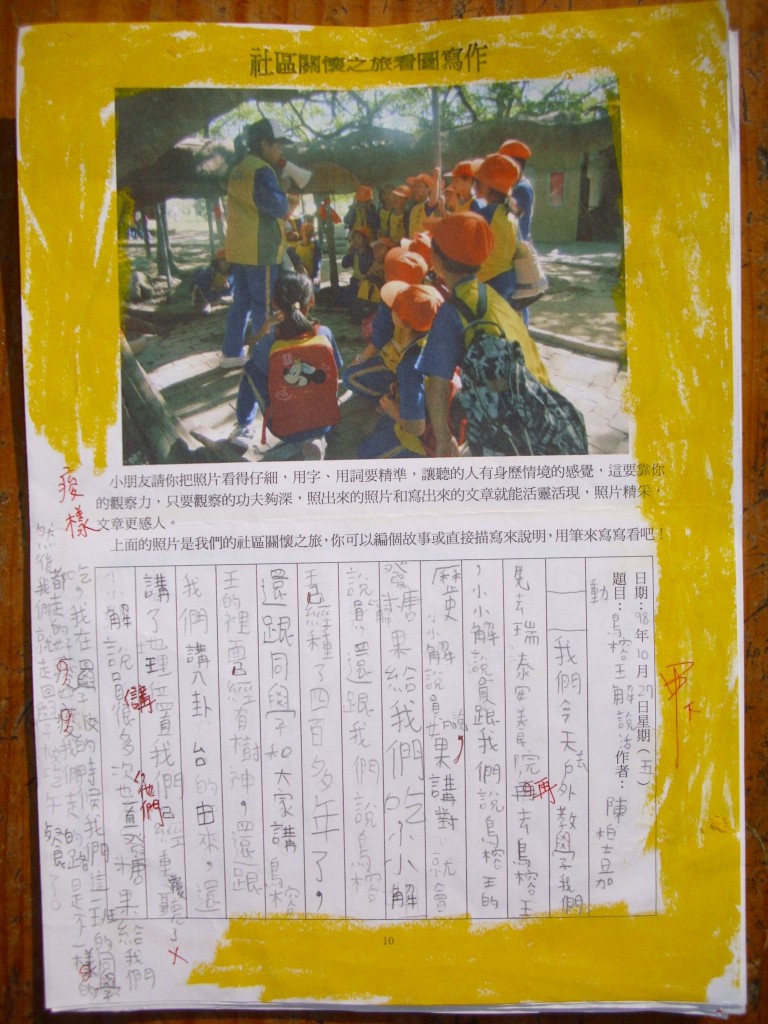 社區關懷之旅看圖寫作
小朋友請你把照片看得仔細，用字、用詞要精準，讓聽的人有身歷情境的感覺，這要靠你
的觀察力，只要觀察的功夫夠深，照出來的照片和寫出來的文章就能活靈活現，照片精采，
文章更感人。
上面的照片是我們的社區關懷之旅，你可以編個故事或直接描寫來說明，用筆來寫寫看吧！
日期：98年10月27日星期（五）
題目：烏榕王解說活 作者：陳柏
動
我們今天去戶外教學我們
先去瑞泰安美院再去烏榕王
，小小解說員跟我們說烏榕王的
歷史小小解說員說，如果講對就會
發糖果給我們吃小小解
說員還跟我們說烏榕
王已經種了四百多年了，
還跟同學和大家講烏榕
王的裡面已經有樹神，還跟
我們講八卦台的由來，還
講了地理位置我們已經重聽了
講 他們
小解說員很多次也一直發糖果給我們
吃，我在回學校的時候我們這一班的同學
都走的好疲我們走的路是不一樣的
然後我們就走回學校吃午餐了。
疲
樣
甲下
10